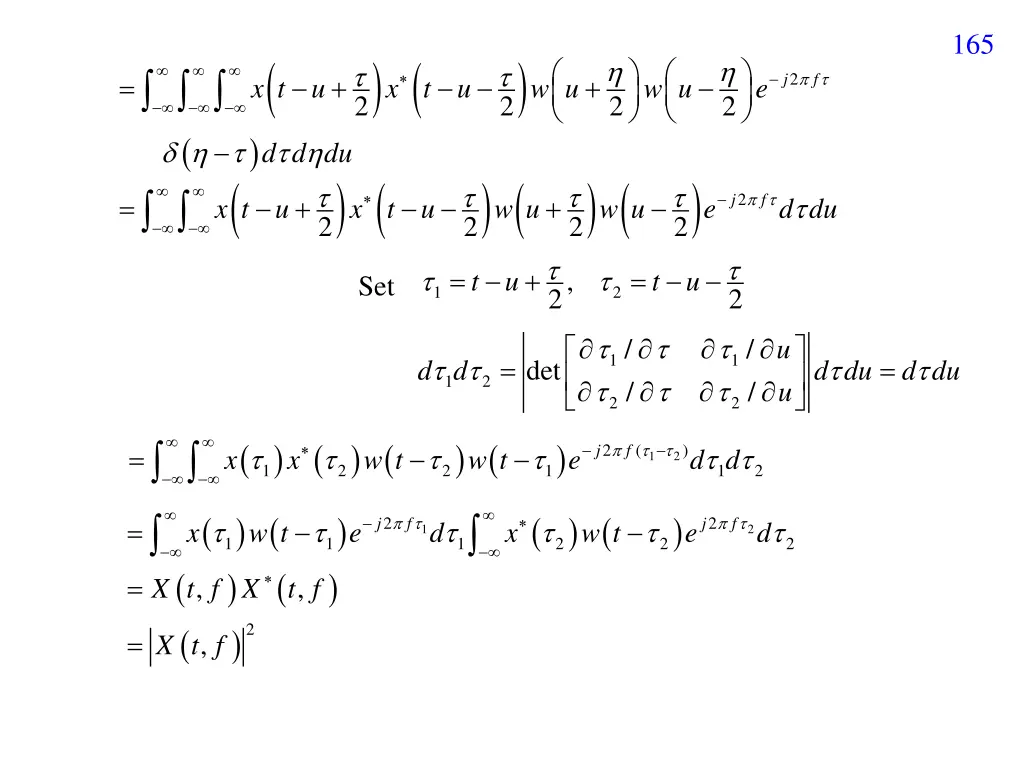 165
= ∫_{−∞}^{∞} ∫_{−∞}^{∞} ∫_{−∞}^{∞} x(t − u + τ/2) x*(t − u − τ/2) w(u + η/2) w(u − η/2) e^{− j2π fτ}
δ(η − τ) dτ dη du
= ∫_{−∞}^{∞} ∫_{−∞}^{∞} x(t − u + τ/2) x*(t − u − τ/2) w(u + τ/2) w(u − τ/2) e^{− j2π fτ} dτ du
Set τ₁ = t − u + τ/2, τ₂ = t − u − τ/2
dτ₁dτ₂ = |det[∂τ₁/∂τ ∂τ₁/∂u; ∂τ₂/∂τ ∂τ₂/∂u]| dτ du = dτ du
= ∫_{−∞}^{∞} ∫_{−∞}^{∞} x(τ₁) x*(τ₂) w(t − τ₂) w(t − τ₁) e^{− j2π f(τ₁−τ₂)} dτ₁dτ₂
= ∫_{−∞}^{∞} x(τ₁) w(t − τ₁) e^{− j2π fτ₁} dτ₁ ∫_{−∞}^{∞} x*(τ₂) w(t − τ₂) e^{j2π fτ₂} dτ₂
= X(t, f) X*(t, f)
= |X(t, f)|²